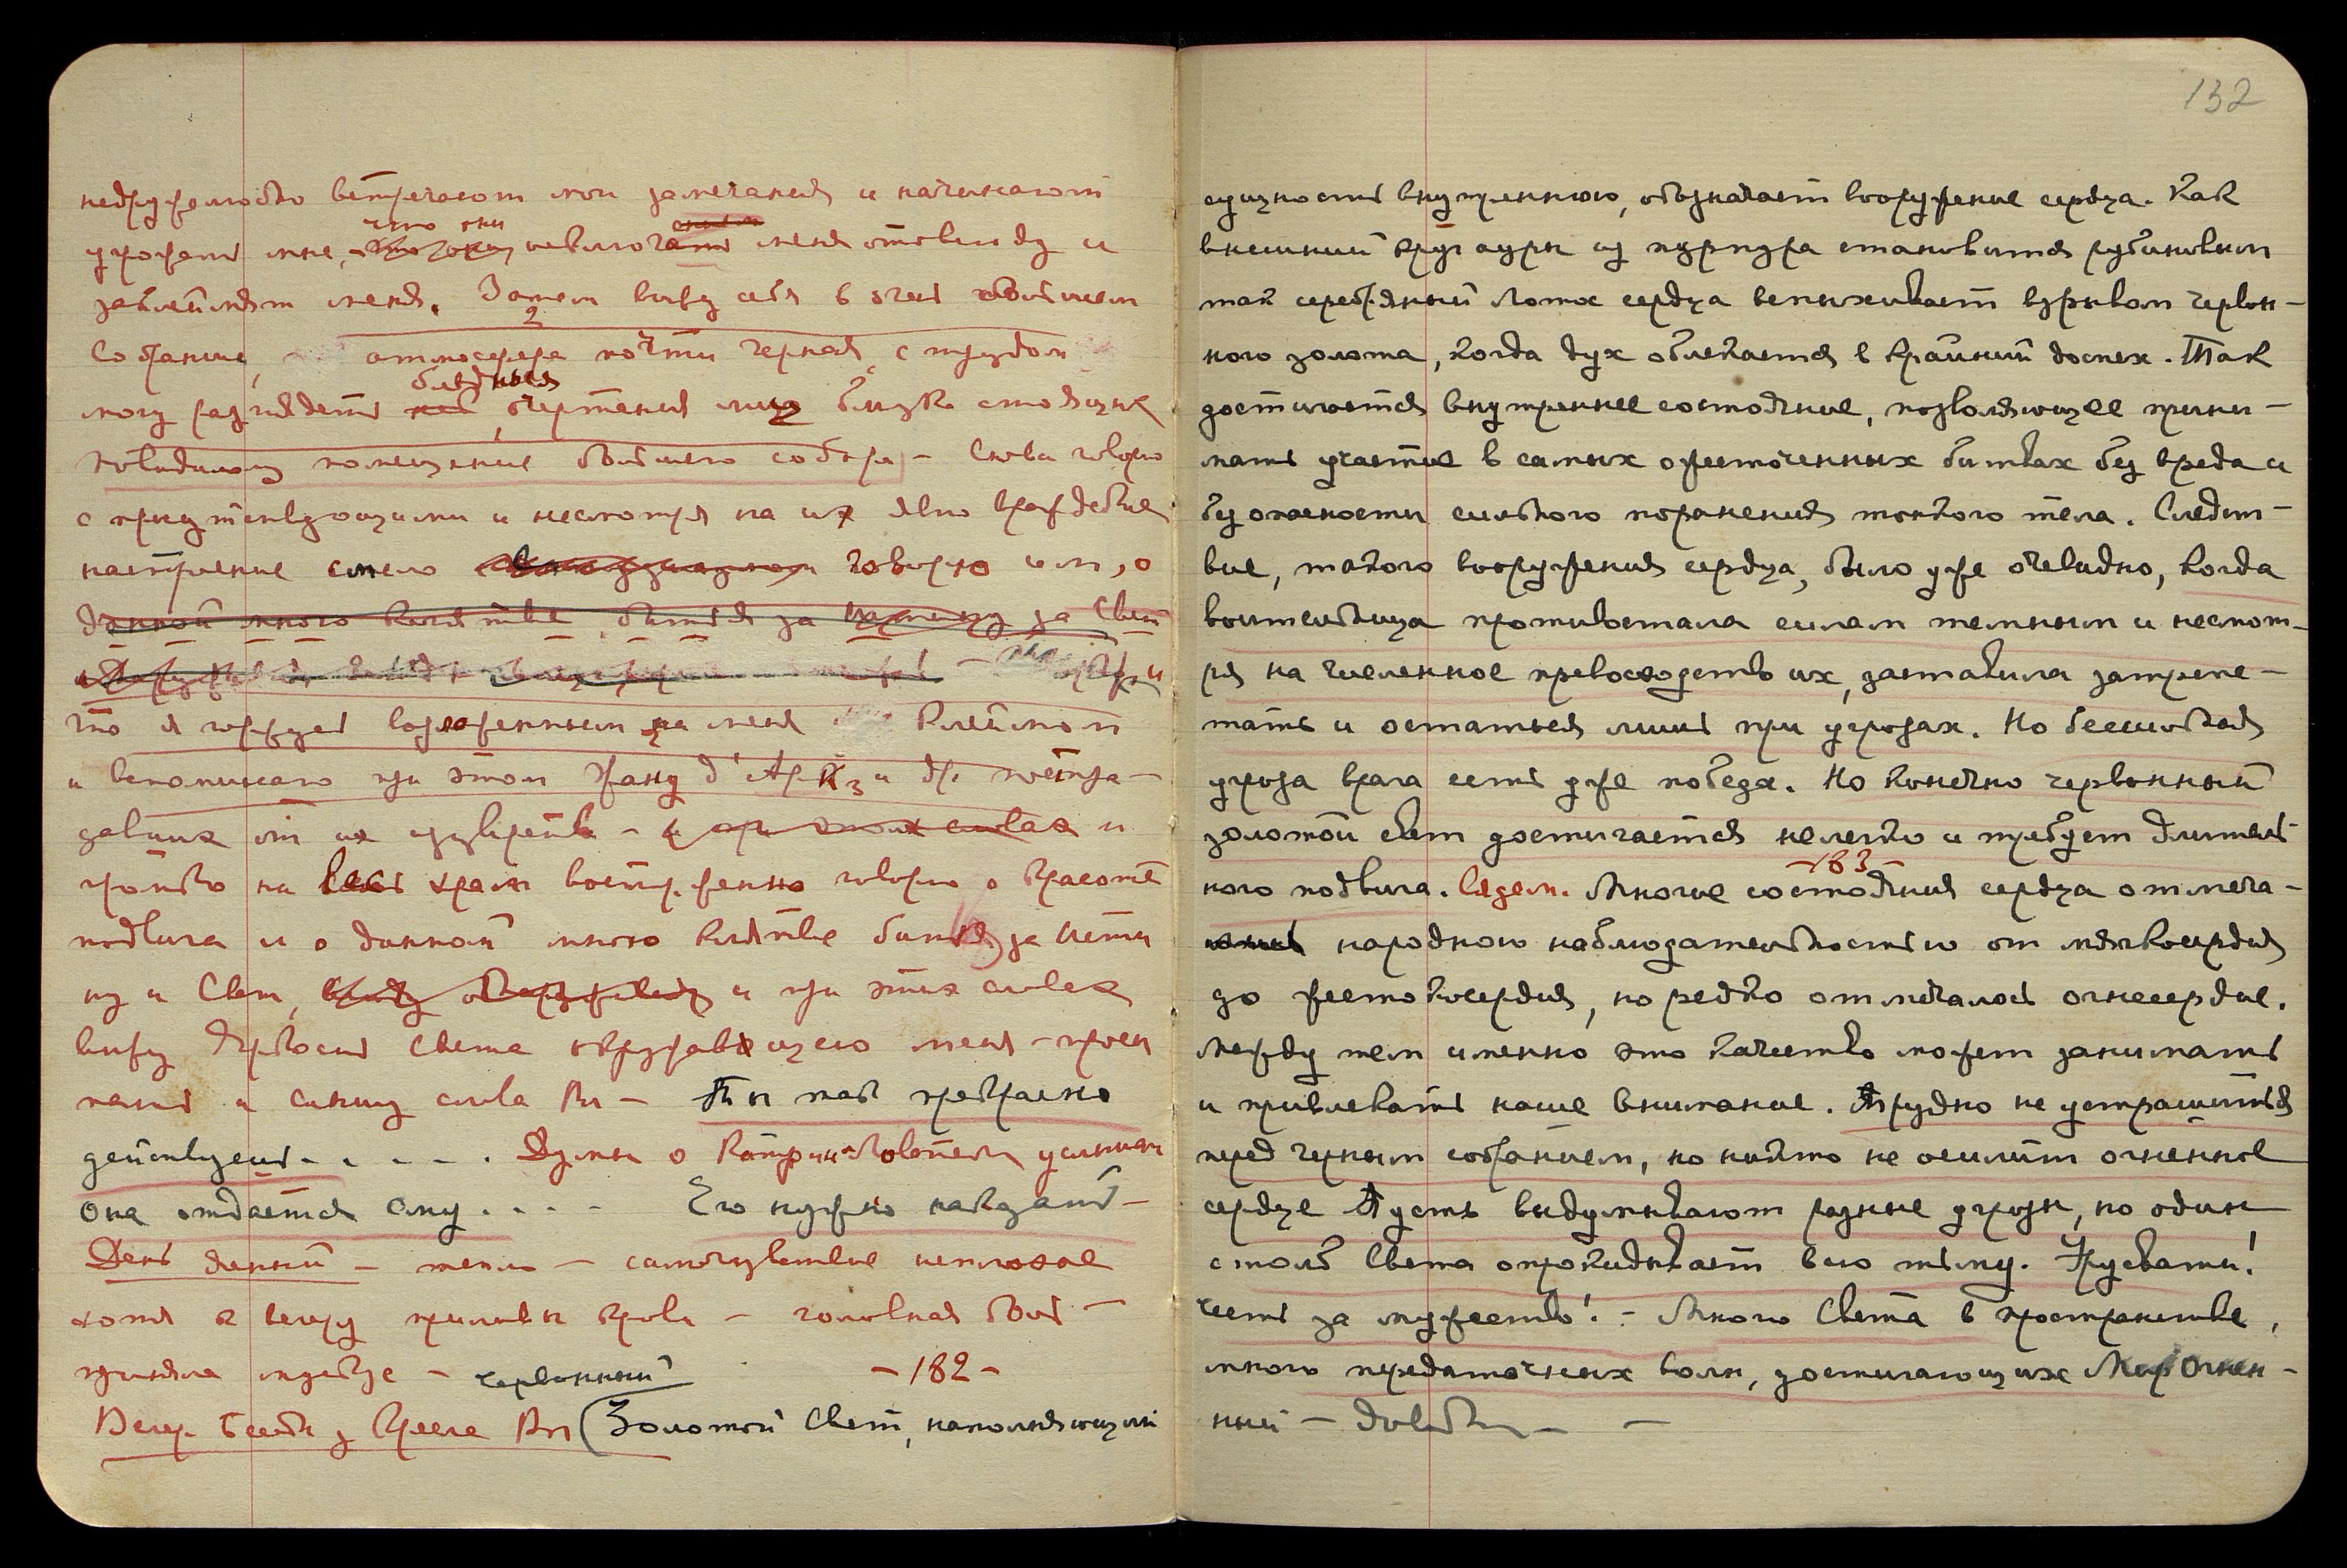 недружелюбно встречают мои замечания и начинают
что они
угрожать мне, исключат меня отовсюду и
заклеймят меня. Затем вижу себя в очень большом
собрании, атмосфера почти черная, с трудом
бледные
могу разглядеть очертания лиц близко стоящих
повидимому помещение большого собора – Снова говорю
с присутствующими и несмотря на их явно враждебное
настроение смело говорю им, о
данной мною клятве биться за за Свет
что я горжусь возложенным на меня клеймом
и вспоминаю при этом Жанну д'Арк и др. постра-
давших от их изуверств – и при этих словах и
громко на весь храм восторженно говорю о красоте
подвига и о данной мною клятве биться за Исти
ну и Свет, и при этих словах
вижу Света меня – просы
паюсь и слышу слова Вл – Ты так прекрасно
действуешь - . . - - . Думы о услыш
она отдается ему . . . - Его нужно наказать –
День данный – тепло – самочувствие неплохое
хотя к вечеру приливы крови – головная боль –
приняла – червонный – 182 –
Вечер. Беседы з Кресле Вл (Золотой Свет, наполняющий
132
сущность внутреннюю, обозначает вооружение сердца. Как
внешний круг ауры из пурпура становится рубиновым
так серебряный Лотос сердца вспыхивает взрывом червон-
ного золота, когда дух облекается в крайний доспех. Так
достигается внутреннее состояние, позволяющее прини-
мать участие в самых ожесточенных битвах без вреда и
без опасности сильного поранения тонкого тела. Следст-
вие, такого вооружения сердца, было уже очевидно, когда
воительница противостала силам темным и несмот-
ря на численное превосходство их, заставила затрепе-
тать и остаться лишь при угрозах. Но бессильная
угроза врага есть уже победа. Но конечно червонный
золотой свет достигается нелегко и требует длитель-
– 183 –
ного подвига. Многие состояния сердца отмеча-
народною наблюдательностью от мягкосердия
до жестокосердия, но редко отмечалось огнесердие.
Между тем именно это качество может занимать
и привлекать наше внимание. Трудно не устрашиться
перед черным собранием, но никто не осилит огненное
сердце Пусть выдумывают разные угрозы, но один
столб Света опрокидывает всю тьму. Урусвати!
честь за мужество! – Много Света в пространстве,
много передаточных волн, достигающих Мир Огнен-
ный – довольно –